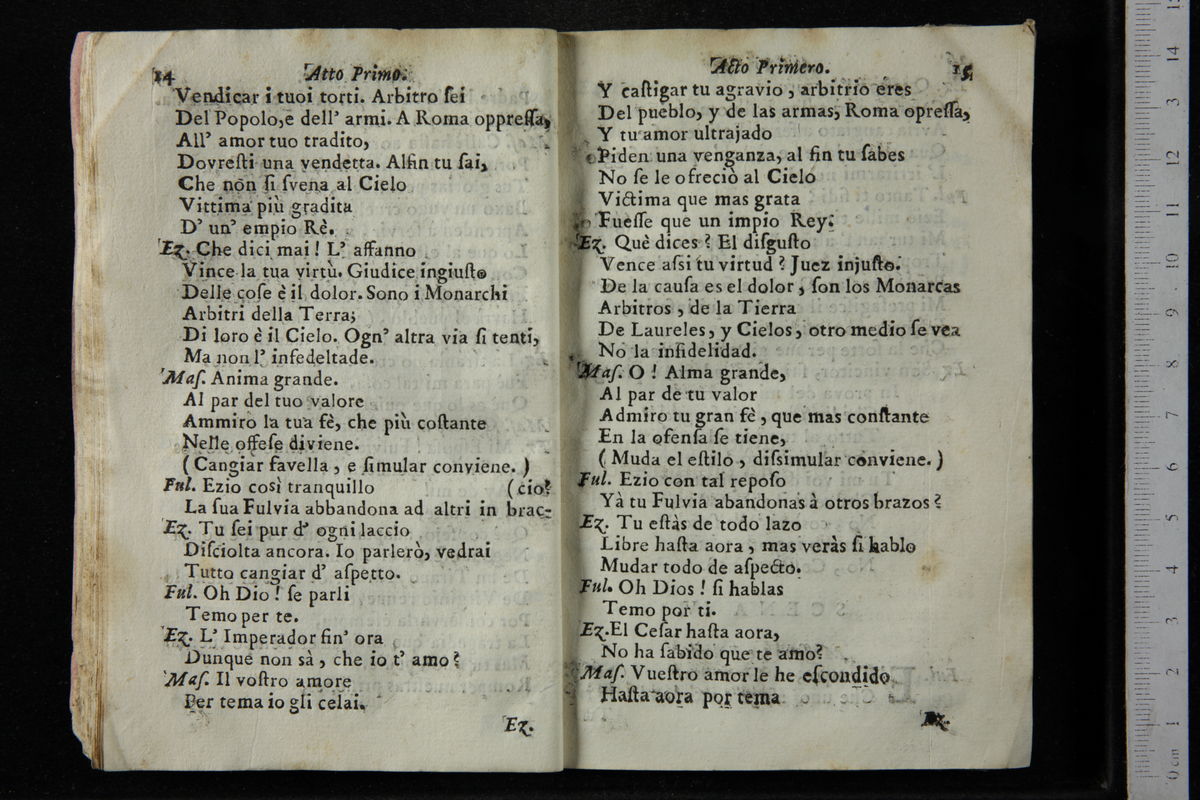 14 Atto Primo.
Vendicar i tuoi torti. Arbitro ſei
Del Popolo, e dell' armi. A Roma oppreſſa,
All' amor tuo tradito,
Dovreſti una vendetta. Alfin tu ſai,
Che non ſi ſvena al Cielo
Vittima più gradita
D' un' empio Rè.
Ez. Che dici mai! L' affanno
Vince la tua virtù. Giudice ingiuſto
Delle coſe è il dolor. Sono i Monarchi
Arbitri della Terra;
Di loro è il Cielo. Ogn' altra via ſi tenti,
Ma non l' infedeltade.
Maſ. Anima grande.
Al par del tuo valore
Ammiro la tua fè, che più coſtante
Nelle offeſe diviene.
(Cangiar favella, e ſimular conviene.)
Ful. Ezio così tranquillo (cio?
La ſua Fulvia abbandona ad altri in brac-
Ez. Tu ſei pur d' ogni laccio
Diſciolta ancora. Io parlerò, vedrai
Tutto cangiar d' aſpetto.
Ful. Oh Dio! ſe parli
Temo per te.
Ez. L' Imperador fin' ora
Dunque non sà, che io t' amo?
Maſ. Il voſtro amore
Per tema io gli celai.
Ez.
Acto Primero. 15
Y caſtigar tu agravio, arbitrio éres
Del pueblo, y de las armas, Roma opreſſa,
Y tu amor ultrajado
Piden una venganza, al fin tu ſabes
No ſe le ofreciò al Cielo
Victima que mas grata
Fueſſe que un impio Rey.
Ez. Què dices? El diſguſto
Vence aſsi tu virtud? Juez injuſto.
De la cauſa es el dolor, ſon los Monarcas
Arbitros, de la Tierra
De Laureles, y Cielos, otro medio ſe vea
No la infidelidad.
Maſ. O! Alma grande,
Al par de tu valor
Admiro tu gran fè, que mas conſtante
En la ofenſa ſe tiene,
(Muda el eſtilo, diſsimular conviene.)
Ful. Ezio con tal repoſo
Yà tu Fulvia abandonas à otros brazos?
Ez. Tu eſtàs de todo lazo
Libre haſta aora, mas veràs ſi hablo
Mudar todo de aſpecto.
Ful. Oh Dios! ſi hablas
Temo por ti.
Ez. El Ceſar haſta aora,
No ha ſabido que te amo?
Maſ. Vueſtro amor le he eſcondido
Haſta aora por tema
Ez.
14
3
13
12
11
10
9
8
7
6
5
4
3
2
1
0 cm